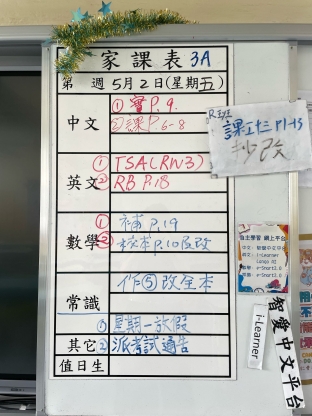 家課表 3A
第 週 5月2日(星期五)
中文 ① 寶 P.9.
② 課 P.6-8
英文 ① TSA(RW3)
② RB P.18
數學 ① 補 P.19
② 校本 P.10及改
常識 作⑤改全本
其它 ① 星期一放假
② 派考試通告
值日生
抄改
自主學習 網上平台
i-Learner
智愛中文平台